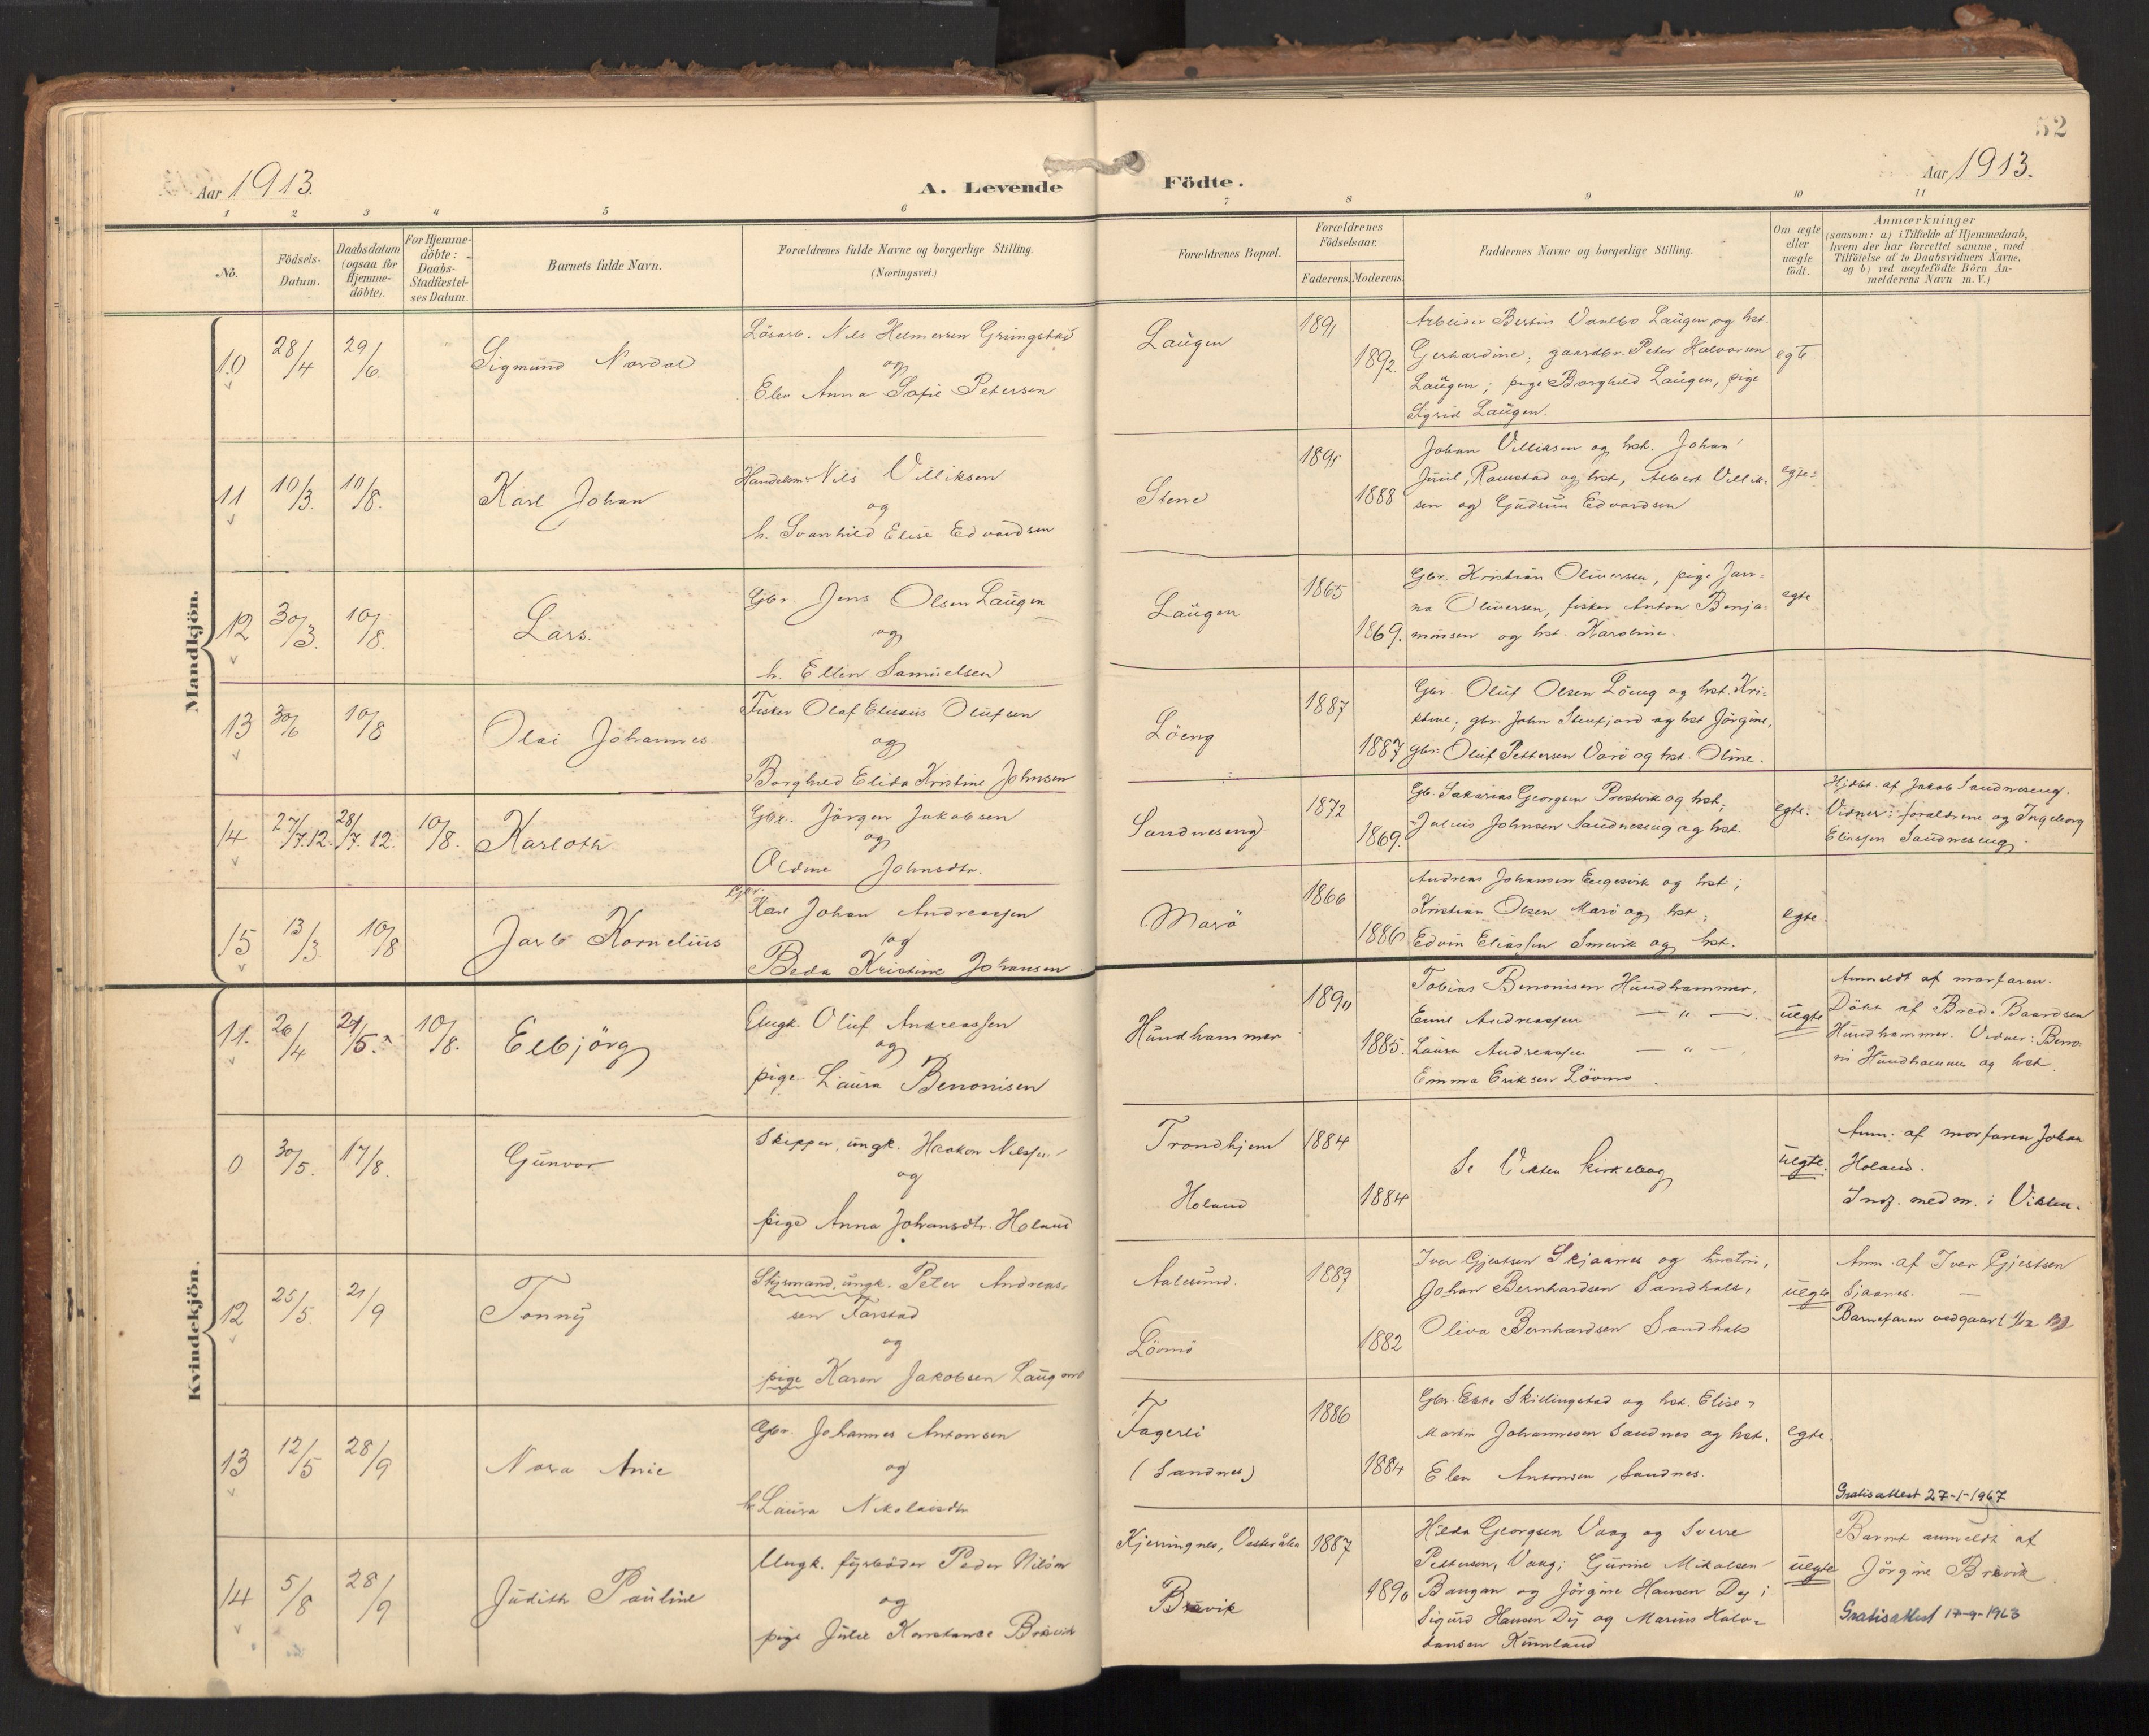 52
Aar 1913.
A. Levende Födte.
Aar 1913.
1 2 3 4 5 6 7 8 9 10 11
No.
Födsels-Datum.
Daabsdatum (ogsaa for Hjemme-döbte).
For Hjemme-döbte: Daabs-Stadfæstel-ses Datum.
Barnets fulde Navn.
Forældrenes fulde Navne og borgerlige Stilling. (Næringsvei.)
Forældrenes Bopæl.
Forældrenes Födselsaar.
Faderens. Moderens.
Faddernes Navne og borgerlige Stilling.
Om ægte eller uægte födt.
Anmærkninger (saasom: a) i Tilfælde af Hjemmedaab, hvem der har forrettet samme, med Tilföielse af to Daabsvidners Navne, og b) ved uægtefödte Börn Anmelderens Navn m.V.)
Mandkjön.
10 28/4 29/6. Sigmund Nordal
Lösarb. Nils Helmersen Gringstad
og
Elen Anna Sofie Petersen
Laugen
1891
1892
Arbeider Bertin Vanebo Laugen og hst.
Gerhardine; gaardbr. Peter Halvorsen
Laugen; pige Borghild Laugen, pige
Sigrid Laugen.
egte
11 10/3. 10/8. Karl Johan
Handelsm. Nils Villiksen
og
h. Svanhild Elise Edvardsen
Stene
1891
1888
Johan Villiksen og hst. Johan
Juul, Ramstad og hst, Albert Villik-
sen og Gudrun Edvardsen
egte
12 30/3. 10/8. Lars.
Gbr Jens Olsen Laugen
og
h. Ellen Samuelsen
Laugen
1865
1869.
Gbr. Kristian Oliversen, pige Jan-
na Oliversen, fisker Anton Benja-
minsen og hst. Karoline.
egte
13 30/6 10/8 Olai Johannes
Fisker Olaf Eliseus Olufsen
og
Borghild Elida Kristine Johnsen
Löeng
1887
1887
Gbr. Oluf Olsen Löeng og hst. Kri-
stine; gbr. John Stenfjord og hst Jörgine,
gbr. Oluf Pettersen Varö og hst. Oline.
14 27/7.12. 28/7.12. 10/8. Karloth
Gbr. Jörgen Jakobsen
og
Oldine Johnsdtr.
Sandneseng
1872
1869.
Gb. Sakarias Georgsen Prestvik og hst;
Julius Johnsen Sandneseng og hst.
egte.
Hjdbt. af Jakob Sandneseng.
Vidner: foraldrene og Ingeborg
Eliassen Sandneseng.
15 13/3. 10/8 Jarl Kornelius
Karl Johan Andreassen
og
Beda Kristine Johansen
Marö
1866
1886
Andreas Johansen Engesvik og hst;
Kristian Olsen Marö og hst;
Edvin Eliassen Smevik og hst.
egte.
Kvindekjön.
11. 26/4 21/5. 10/8. Elbjörg
Ungk. Oluf Andreassen
og
pige Laura Benonisen
Hundhammer
1890
1885.
Tobias Benonisen Hundhammer,
Emil Andreassen — " —
Laura Andreassen — " —
Emma Eriksen Lövmo.
uegte
Anmeldt af morfaren.
Döbt af Bred. Baardsen
Hundhammer. Vidner: Beno
ni Hundhammer og hst.
0 30/5. 17/8. Gunvor
Skipper, ungk. Haakon Nilssen
og
pige Anna Johansdtr. Holand
Trondhjem
Holand
1884
1884
Se Vikten kirkebog
uegte.
Anm. af morfaren Johan
Holand.
Indg. med m. i Vikten.
12 25/5. 21/9 Tonny
Styrmand, ungk. Peter Andreas-
sen Farstad
og
pige Karen Jakobsen
Aalesund.
Lövmo
1889
1882
Iver Gjertsen Skjaanes og hustru,
Johan Bernhardsen Sandhals,
Oliva Bernhardsen Sandhals
uegte
Anm. af Iver Gjertsen
Sjaanes.
Barnefaren vedgaar
13 12/5 28/9 Nora Anie
Gbr. Johannes Antonsen
og
h. Laura Nikolaisdtr
Fagerli
(Sandnes)
1886
1884
Gbr. Skillingstad og hst. Elise,
Martin Johannesen Sandnes og hst.
Elen Antonsen Sandnes.
egte.
Gratisattest 27-1-1967
14 5/8 28/9 Judith Pauline
Ungk. fyrböder Peder Nilsen
og
pige Julie Konstanse Brævik
Kjerringnes, Vesterålen
Brævik
1887
1890
Hilda Georgsen Vaag og Sverre
Pettersen, Vaag; Gurine Mikalsen
Baugan og Jörgine Hansen Dy;
Sigurd Hansen Dy og Marius Halv-
dansen Kunland
uegte
Barnet anmeldt af
Jörgine Brævik
Gratisattest 17-9-1963